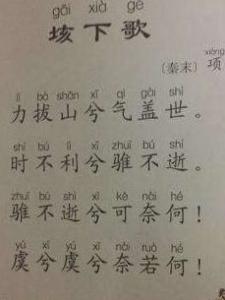 gāi xià gē
垓下歌
xiàng
（秦末）项
lì bá shān xī qì gài shì
力拔山兮气盖世。
shí bú lì xī zhuī bú shì
时不利兮骓不逝。
zhuī bú shì xī kě nài hé
骓不逝兮可奈何！
yú xī yú xī nài ruò hé
虞兮虞兮奈若何！